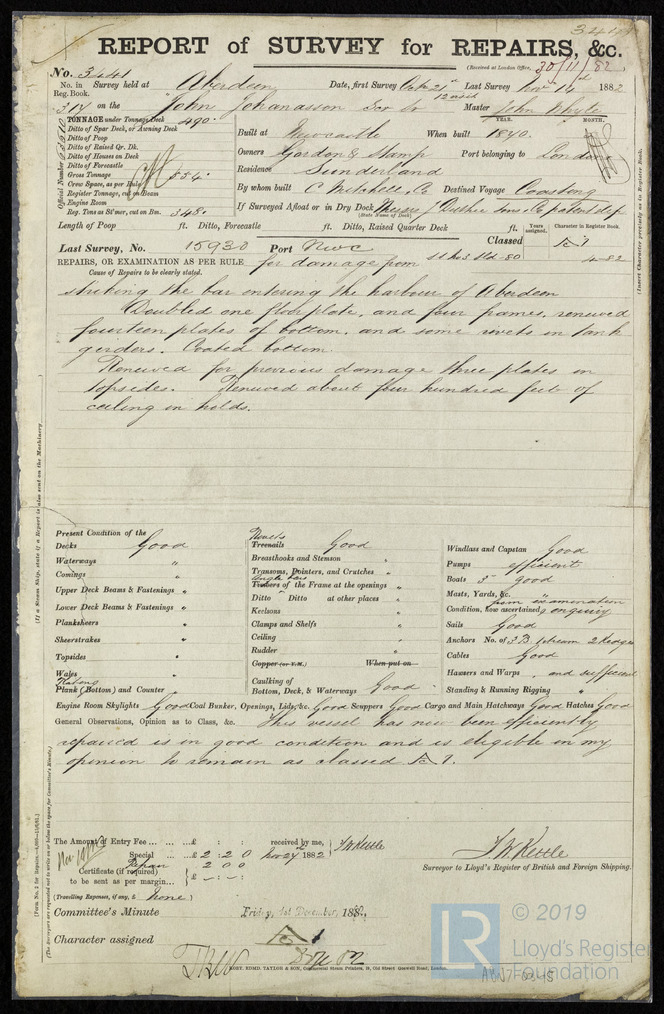 REPORT of SURVEY for REPAIRS, &c.
(Received at London Office, 30/11/82
No. 3441
No. in Reg. Book. Survey held at Aberdeen Date, first Survey Octr 21st Last Survey Nov 14 1882
314 on the "John Johanasson Master John Whyte
TONNAGE under Tonnage Deck 490.
Ditto of Spar Deck, or Awning Deck
Ditto of Poop
Ditto of Raised Qr. Dk.
Ditto of Houses on Deck
Ditto of Forecastle
Gross Tonnage 556.
Crew Space, as per Rule
Register Tonnage, cut on Beam
Engine Room
Reg. Tons as St'mer, cut on Bm. 348.
Official Number
YEAR. MONTH.
Built at Newcastle When built 1870.
Owners Gordon & Stamp Port belonging to London
Residence Sunderland
By whom built C Mitchell & Co Destined Voyage Coasting
If Surveyed Afloat or in Dry Dock Messrs J Duthie Sons & Co patent slip
(State Name of Dock)
Length of Poop ft. Ditto, Forecastle ft. Ditto, Raised Quarter Deck ft.
Years assigned. Character in Register Book.
Last Survey, No. 15930 Port Nwc Classed
REPAIRS, OR EXAMINATION AS PER RULE for damage from
Cause of Repairs to be clearly stated.
striking the bar entering the harbour of Aberdeen
Doubled one floorplate, and four frames, renewed
fourteen plates of bottom, and some rivets in tank
girders. Coated bottom.
Renewed for previous damage three plates in
topsides. Renewed about four hundred feet of
ceiling in holds.
Present Condition of the
Decks Good
Waterways "
Comings "
Upper Deck Beams & Fastenings "
Lower Deck Beams & Fastenings "
Planksheers "
Sheerstrakes "
Topsides "
Wales "
Plating
Plank (Bottom) and Counter "
Rivets
Treenails Good
Breasthooks and Stemson "
Transoms, Pointers, and Crutches "
Angle bars
Timbers of the Frame at the openings "
Ditto Ditto at other places "
Keelsons "
Clamps and Shelfs "
Ceiling "
Rudder "
Copper (or Y.M.) When put on
Caulking of
Bottom, Deck, & Waterways Good
Windlass and Capstan Good
Pumps efficient
Boats 3 good
Masts, Yards, &c.
Condition, how ascertained from examination & enquiry
Sails Good
Anchors No. of 3 B 1 stream 2 Kedges
Cables Good
Hawsers and Warps " and sufficient
Standing & Running Rigging "
Engine Room Skylights Good Coal Bunker, Openings, Lids, &c. Good Scuppers Good Cargo and Main Hatchways Good Hatches Good
General Observations, Opinion as to Class, &c. This vessel has now been efficiently
repaired is in good condition and is eligible in my
opinion to remain as classed
The Amount of Entry Fee ... £ : : received by me,
Special ... £ 2 : 2 0 Nov 24th 1882 J. W. Kettle
Repair 2 0 0
Certificate (if required)
to be sent as per margin... £ – : – :
(Travelling Expenses, if any, £ none)
J. W. Kettle
Surveyor to Lloyd's Register of British and Foreign Shipping.
Committee's Minute Friday, 1st December, 1882.
Character assigned
PORT. EDMD. TAYLOR & SON, Commercial Steam Printers, 19, Old Street Goswell Road, London.
(I) a Steam Ship, state if a Report is also sent on the Machinery.
(Insert Character precisely as in Register Book.
(The Surveyors are requested not to write on or below the space for Committee's Minute.)
LR
© 2019
Lloyd's Register
Foundation